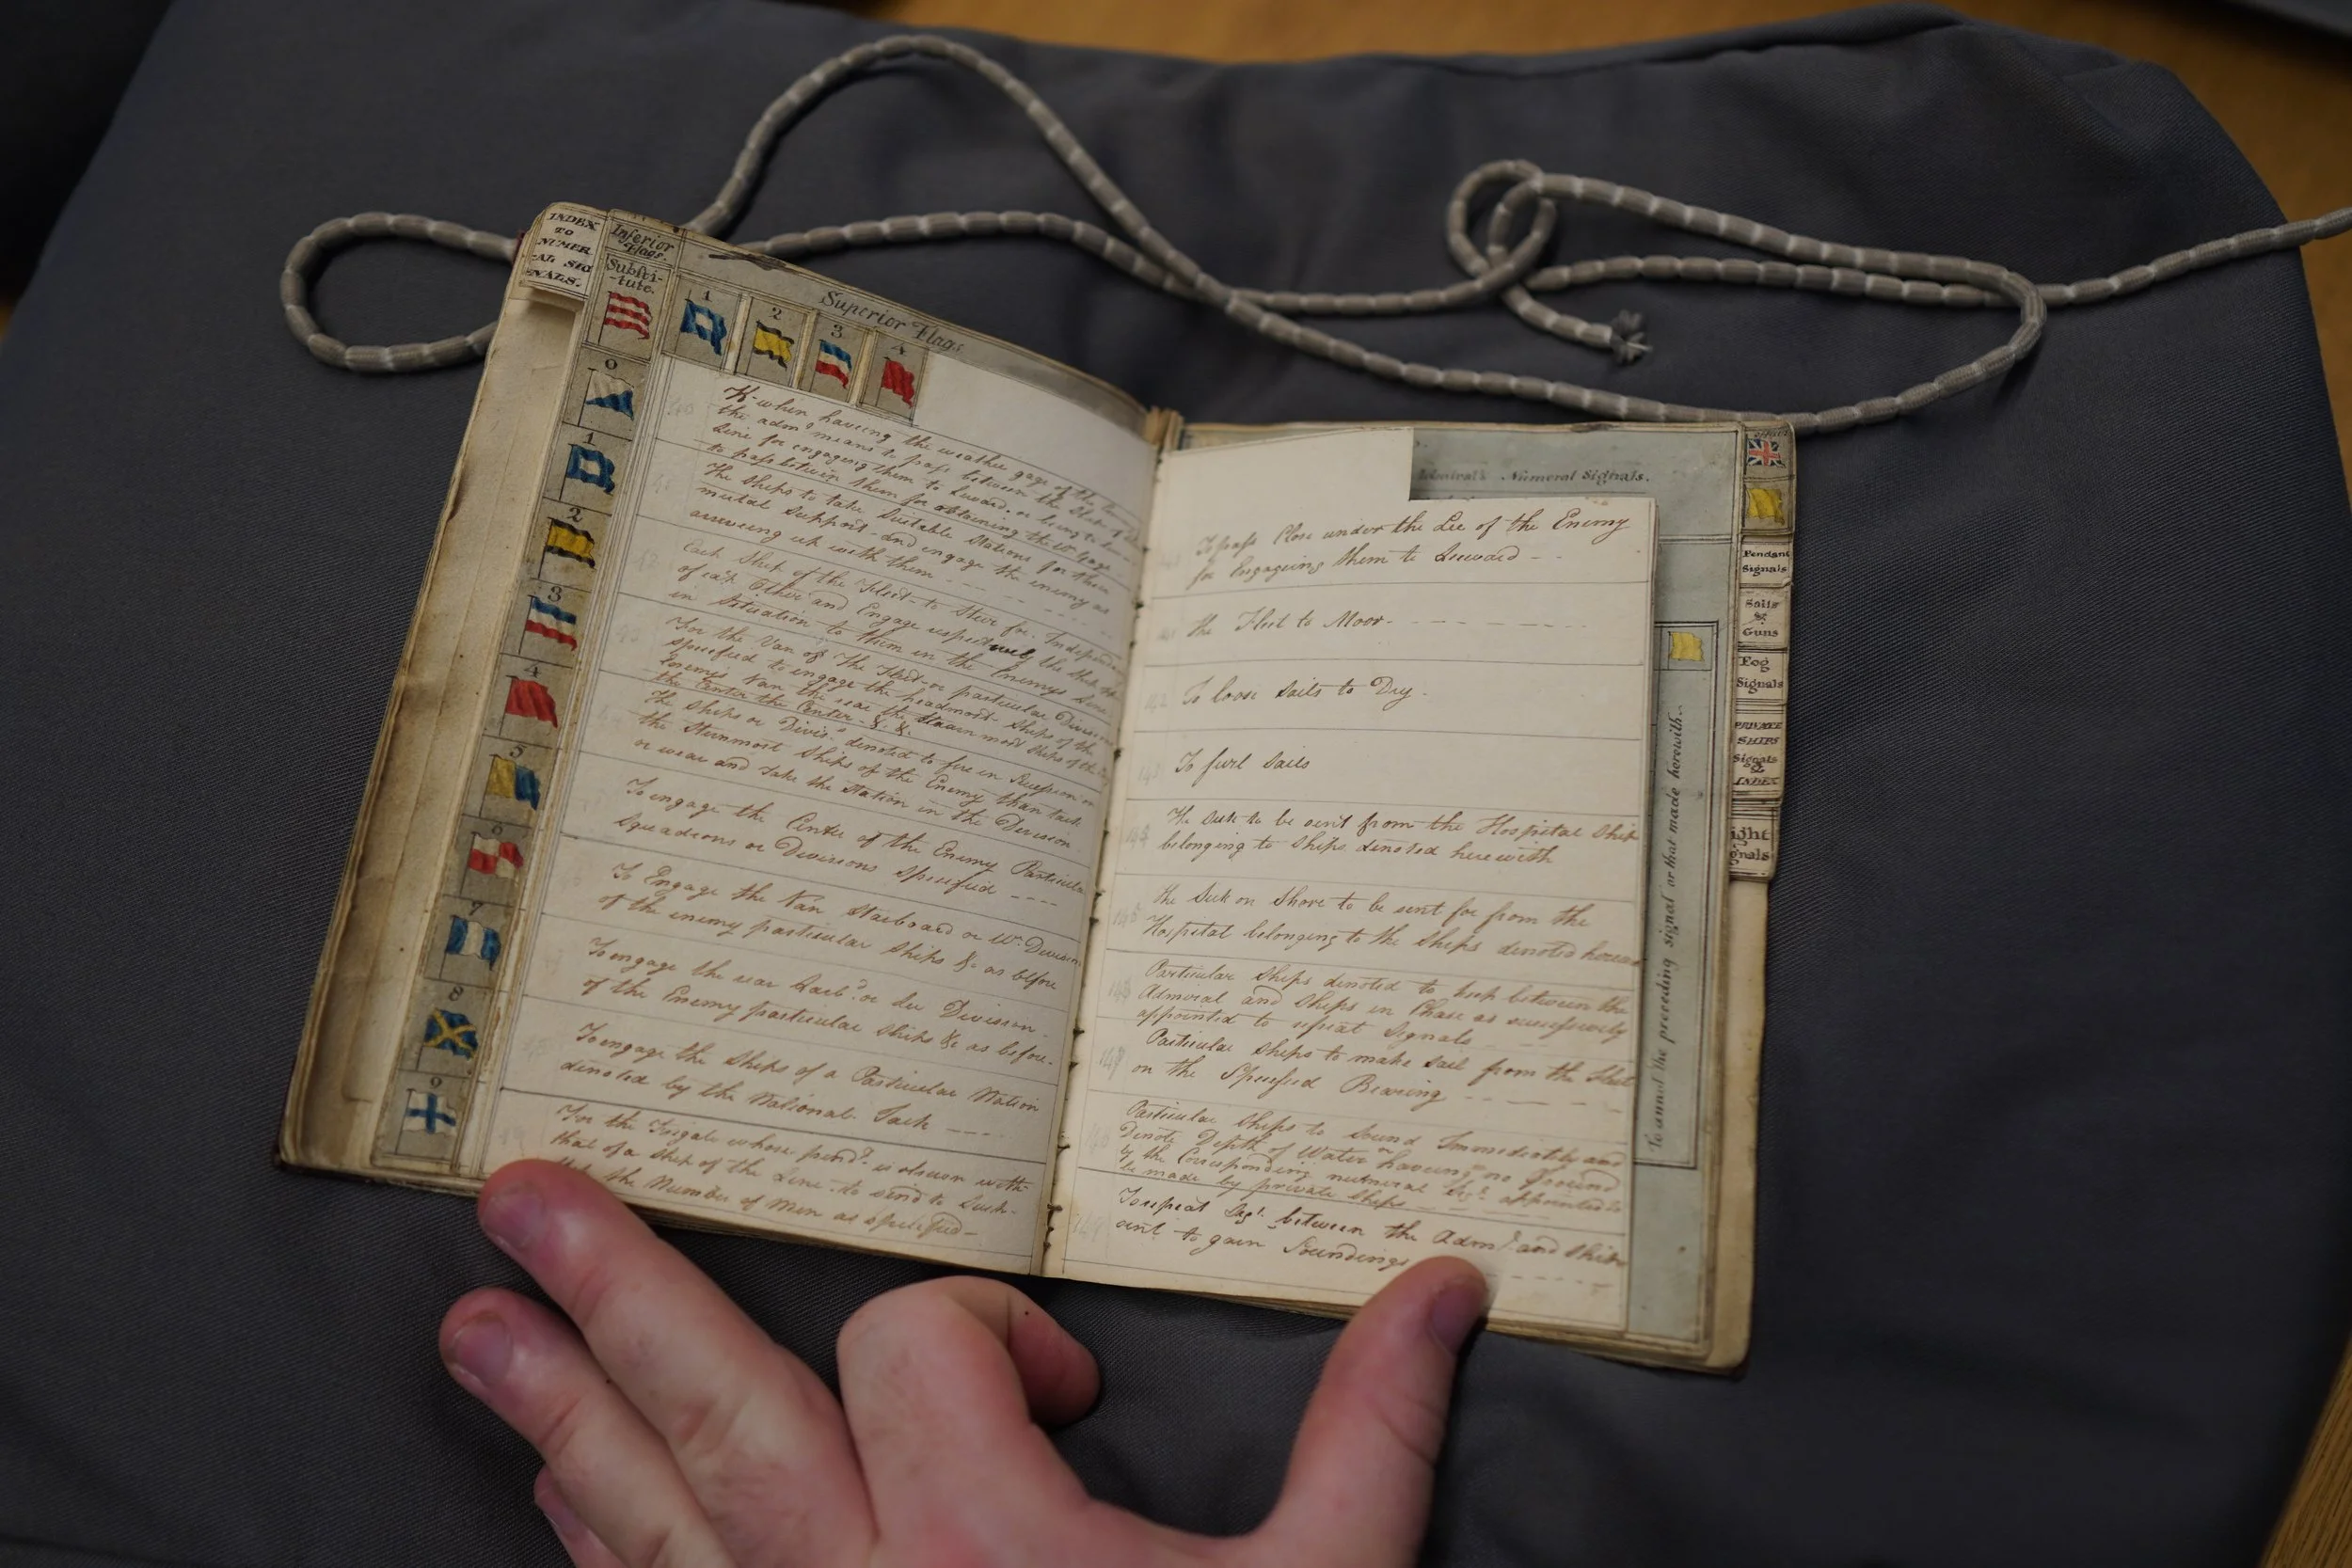 INDEX
TO
NUMER
-AL SIG
NALS.
Inferior
Flags.
Substi-
tute.
0
1
2
3
4
5
6
7
8
9
Superior Flags
1
2
3
4
If when haveing the weather gage of the
the adm.l means to pass between the
line for engageing them to Leeward. or being to
to pass between them for obtaining the W. Gage
The Ships to take Suitable Stations for their
mutal Support. and engage the enemy as
arriveing up with them
Each Ship of the Fleet to Steer for. Independ
of each Other and Engage respectively the Ship
in Situation to them in the Enemys Line
For the Van of the Fleet or particular Division
specified to engage the headmost Ships of the
Enemys Van the rear the Starn most Ships of the
the Center the Center &. &.
The Ships or Divis.n denoted to fire in Succession on
the Sternmost Ships of the Enemy than tack
or wear and take the Station in the Division
To engage the Center of the Enemy Particular
Squadrons or Divisions Specified
To Engage the Van Starboard or W. Division
of the enemy particular Ships &c as before
To engage the rear Larb.d or Lee Division
of the Enemy particular Ships &c as before.
To engage the Ships of a Particular Nation
denoted by the National Jack
For the Frigate whose pend.t is shown with
that of a Ship of the Line. to send to
the Number of Men as specified
Admiral's Numeral Signals.
To pass Close under the Lee of the Enemy
for Engageing them to Leeward
the Fleet to Moor.
142 To loose Sails to Dry.
143 To furl Sails
144 The Sick to be sent from the Hospital Ship
belonging to Ships denoted herewith
145 the Sick on Shore to be sent for from the
Hospital belonging to the Ships denoted
146 Particular Ships denoted to keep between the
Admiral and Ships in Chace as successively
appointed to repeat Signals
147 Particular Ships to make Sail from the Fleet
on the Specified Bearing
148 Particular Ships to Sound Immediately and
Denote Depth of Water haveing or no Ground
by the Corresponding numeral Sig.l appointed to
be made by private Ships
149 To repeat Sig.l between the Adm.l and Ships
sent to gain Soundings
To annul the preceeding signal or that made herewith.
Pendant
Signals
Sails
&
Guns
Fog
Signals
PRIVATE
SHIPS
Signals
&
INDEX